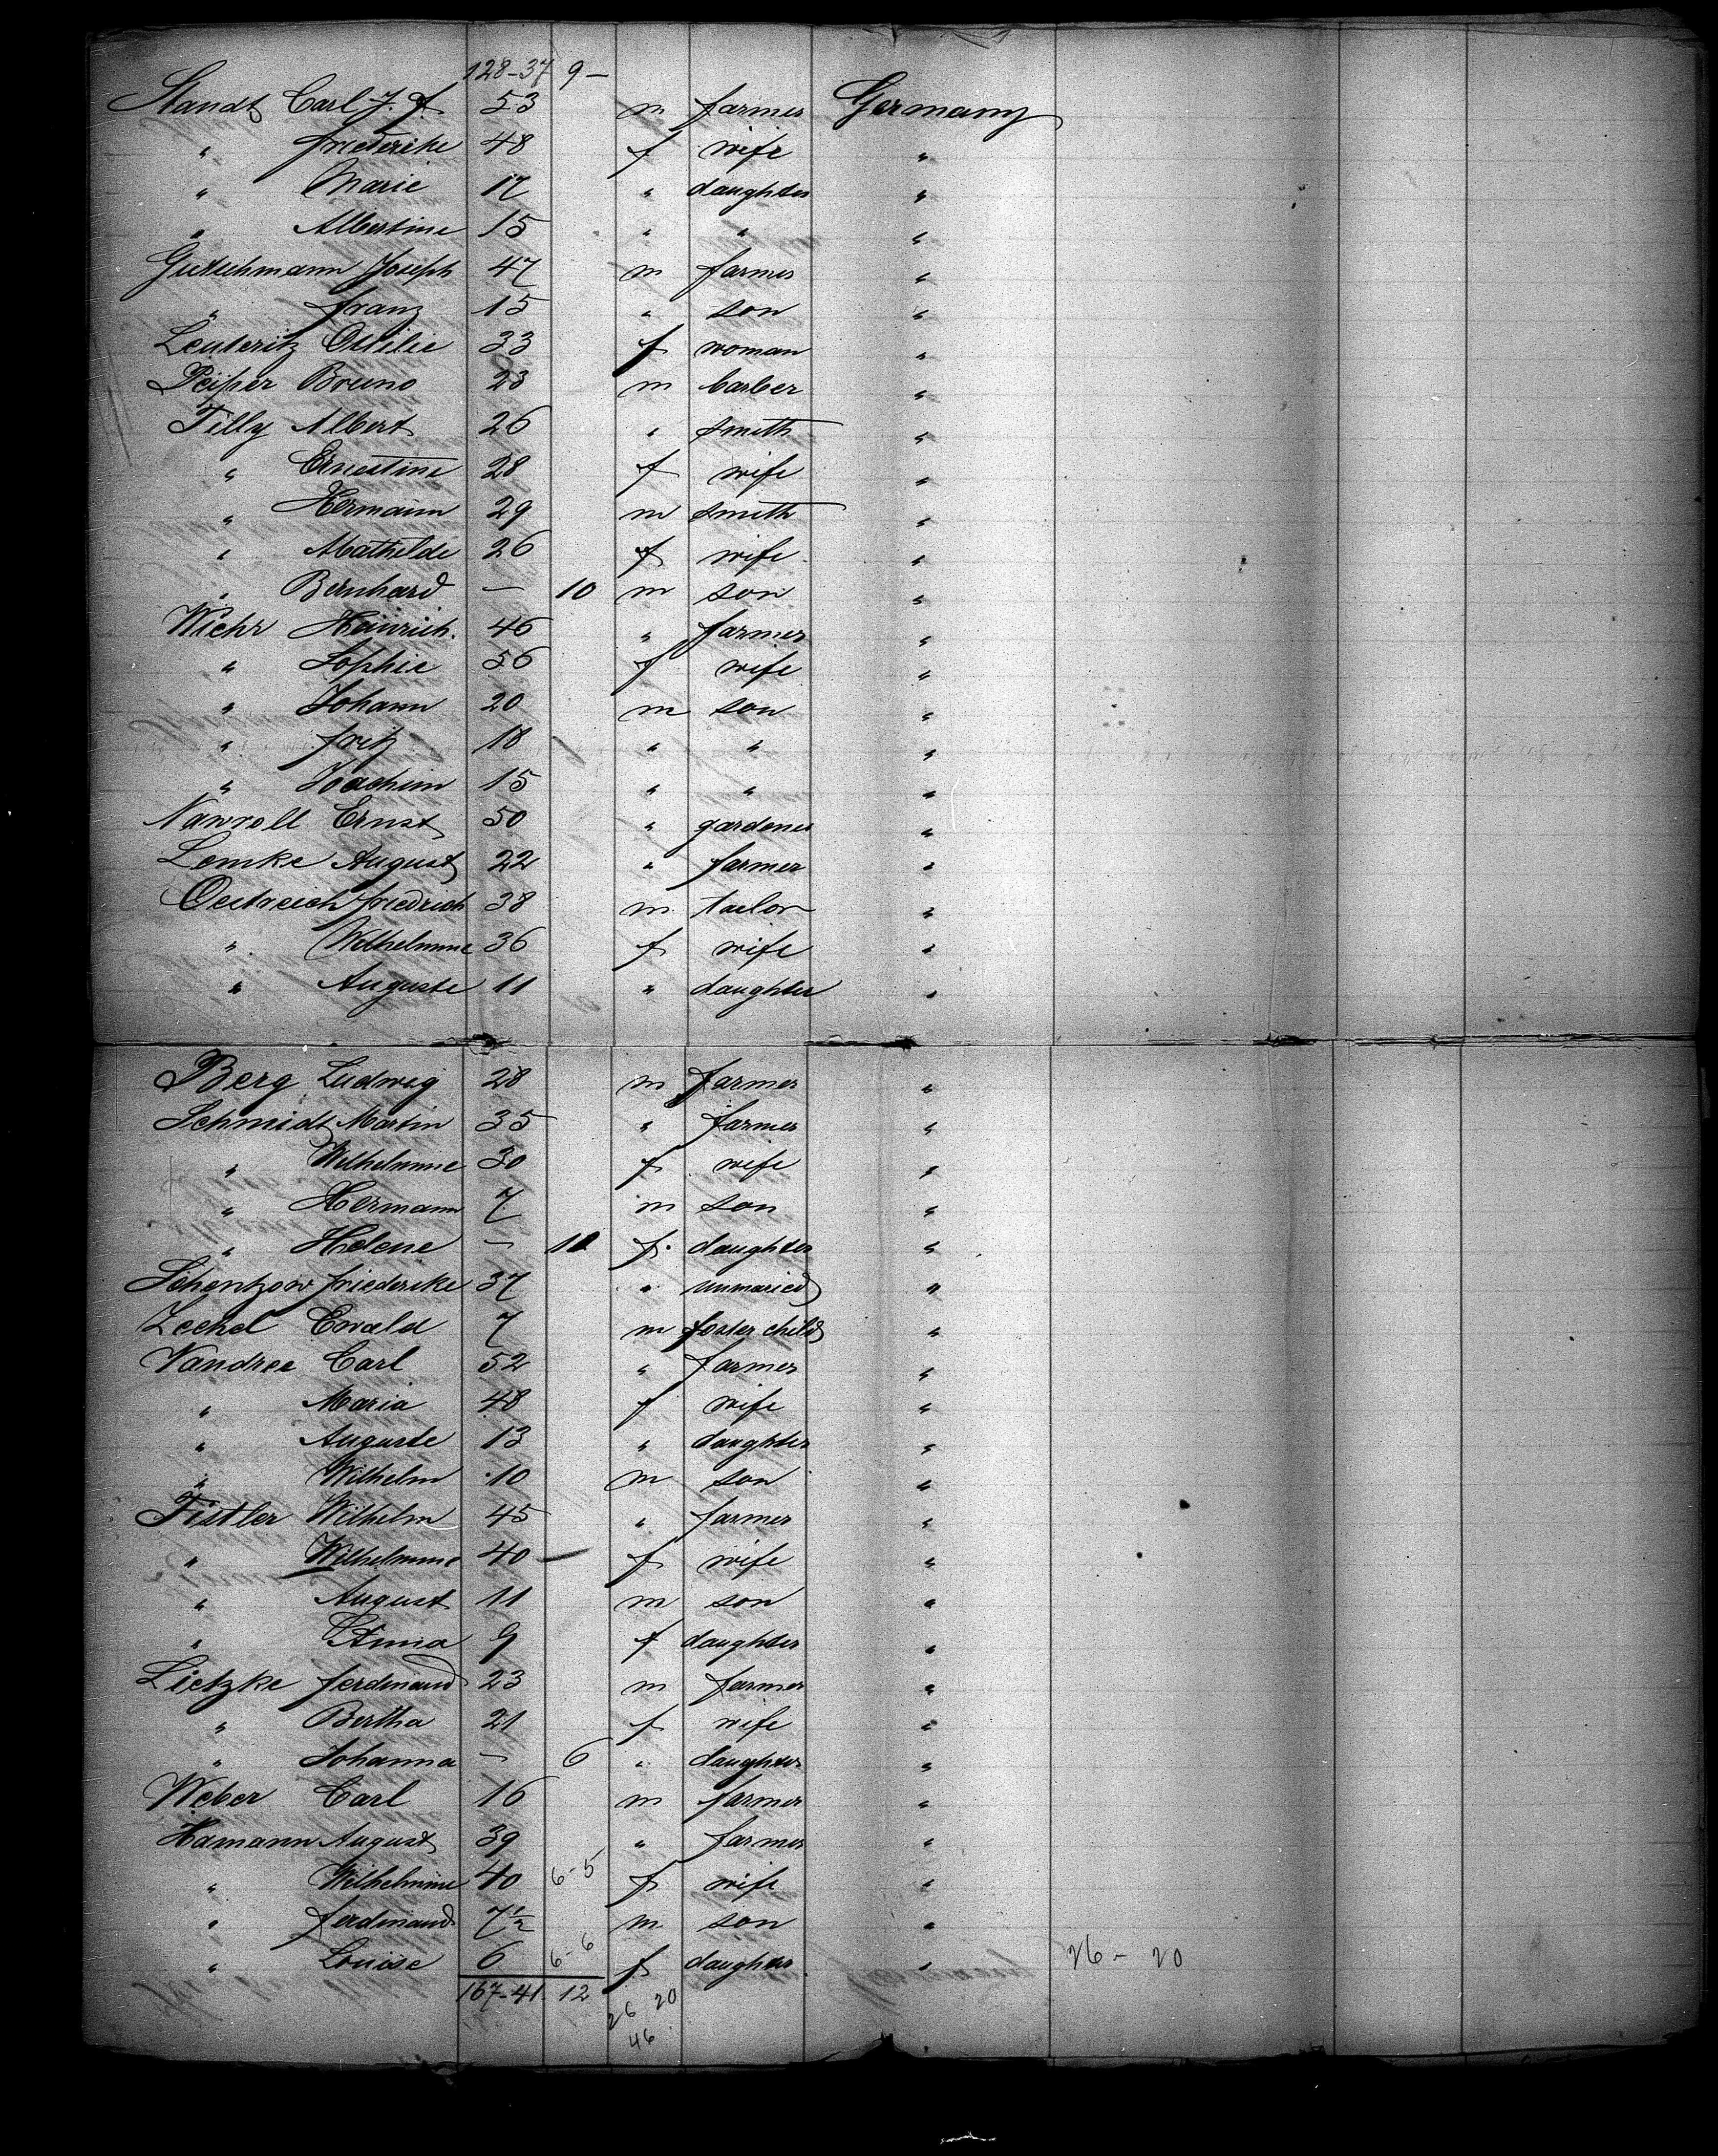 128-37 9-
Standt Carl J. F. 53 m farmer Germany
" Friederike 48 f wife "
" Marie 17 " daughter "
" Albertine 15 " " "
Gutschmann Joseph 47 m farmer "
" Franz 15 " son "
Leuteritz Ottilie 33 f woman "
Peißer Bruno 23 m barber "
Tilly Albert 26 " smith "
" Ernestine 28 f wife "
" Hermann 29 m smith "
" Mathilde 26 f wife "
" Bernhard — 10 m son "
Wichr Heinrich 46 " farmer "
" Sophie 56 f wife "
" Johann 20 m son "
" Fritz 18 " " "
" Joachim 15 " " "
Nawroll Ernst 50 " gardener "
Lemke August 22 " farmer "
Oestreich Friedrich 38 m tailor "
" Wilhelmine 36 f wife "
" Auguste 11 " daughter "
Berg Ludwig 28 m farmer "
Schmidt Martin 35 " farmer "
" Wilhelmine 30 f wife "
" Hermann 7 m son "
" Helene — f. daughter "
Schentzow Friederike 37 " unmaried "
Zechel Ewald 7 m foster child "
Vandree Carl 52 " farmer "
" Maria 48 f wife "
" Auguste 13 " daughter "
" Wilhelm 10 m son "
Fistler Wilhelm 45 " farmer "
" Wilhelmine 40 — f wife "
" August 11 m son "
" Anna 9 f daughter "
Lietzke Ferdinand 23 m farmer "
" Bertha 21 f wife "
" Johanna — 6 " daughter "
Weber Carl 16 m farmer "
Hamann August 39 " farmer "
" Wilhelmine 40 6-5 f wife "
" Ferdinand 7½ m son "
" Louise 6 6-6 f daughter " 26 - 20
167-41 12
26 20
46